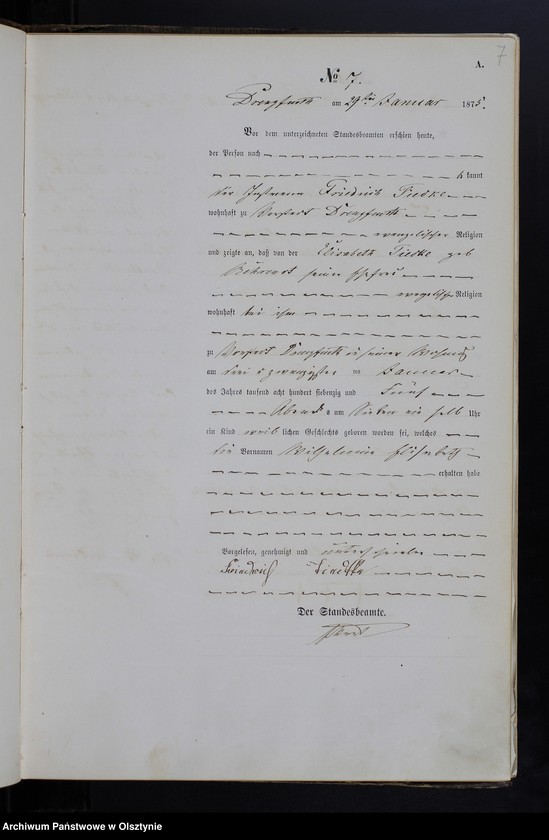 7
A.
No 7.
Drengfurth am 29ten Januar 1875.
Vor dem unterzeichneten Standesbeamten erschien heute,
der Person nach
kannt
der Friedrich Tiedke
wohnhaft zu Vorstadt Drengfurth
evangelischer Religion
und zeigte an, daß von der Elisabeth Tiedke geb
seiner Ehefrau
Religion
wohnhaft bei ihm
zu Vorstadt Drengfurth in seiner Wohnung
am drei u zwanzigsten Januar
des Jahres tausend acht hundert siebenzig und Fünf
Abends um Sieben ein halb Uhr
ein Kind weiblichen Geschlechts geboren worden sei, welches
die Vornamen Wilhelmine Elisabeth
erhalten habe
Vorgelesen, genehmigt und unterschrieben
Friedrich
Der Standesbeamte.
Archiwum Państwowe w Olsztynie